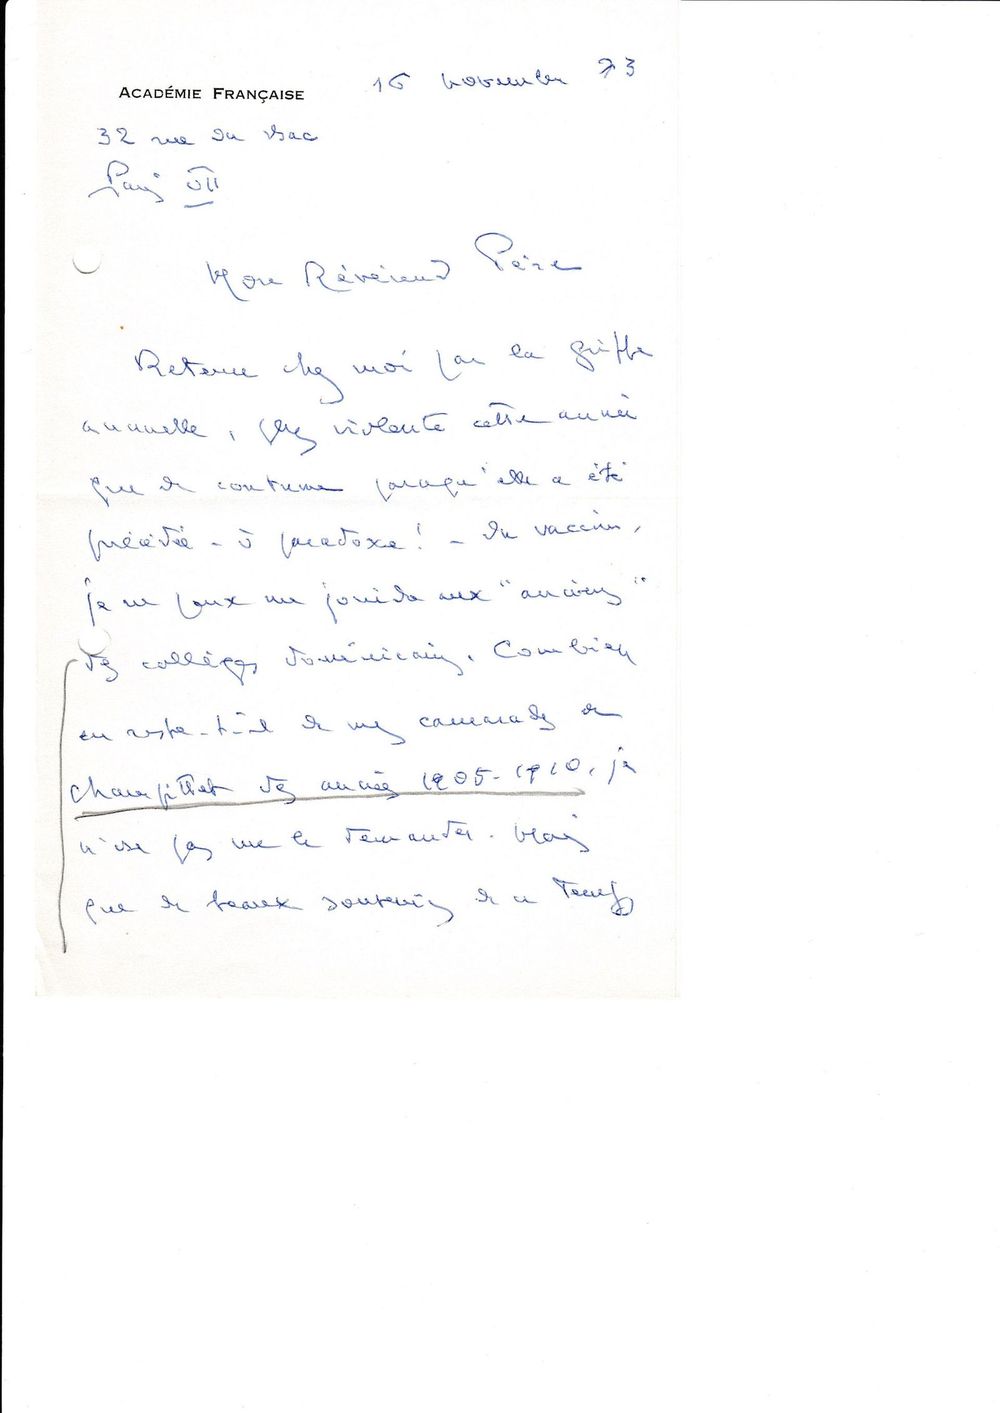 ACADÉMIE FRANÇAISE
16 novembre 73
32 rue du Bac
Paris VII
Mon Révérend Père
Retenu chez moi par la grippe
annuelle, plus violente cette année
que de coutume parcequ'elle a été
précédée - ô paradoxe! - du vaccin,
je ne peux me joindre aux "anciens"
des collèges dominicains. Combien
en reste-t-il de mes camarades de
Champittet des années 1905-1910, je
n'ose pas me le demander. Mais
que de beaux souvenirs de ce temps